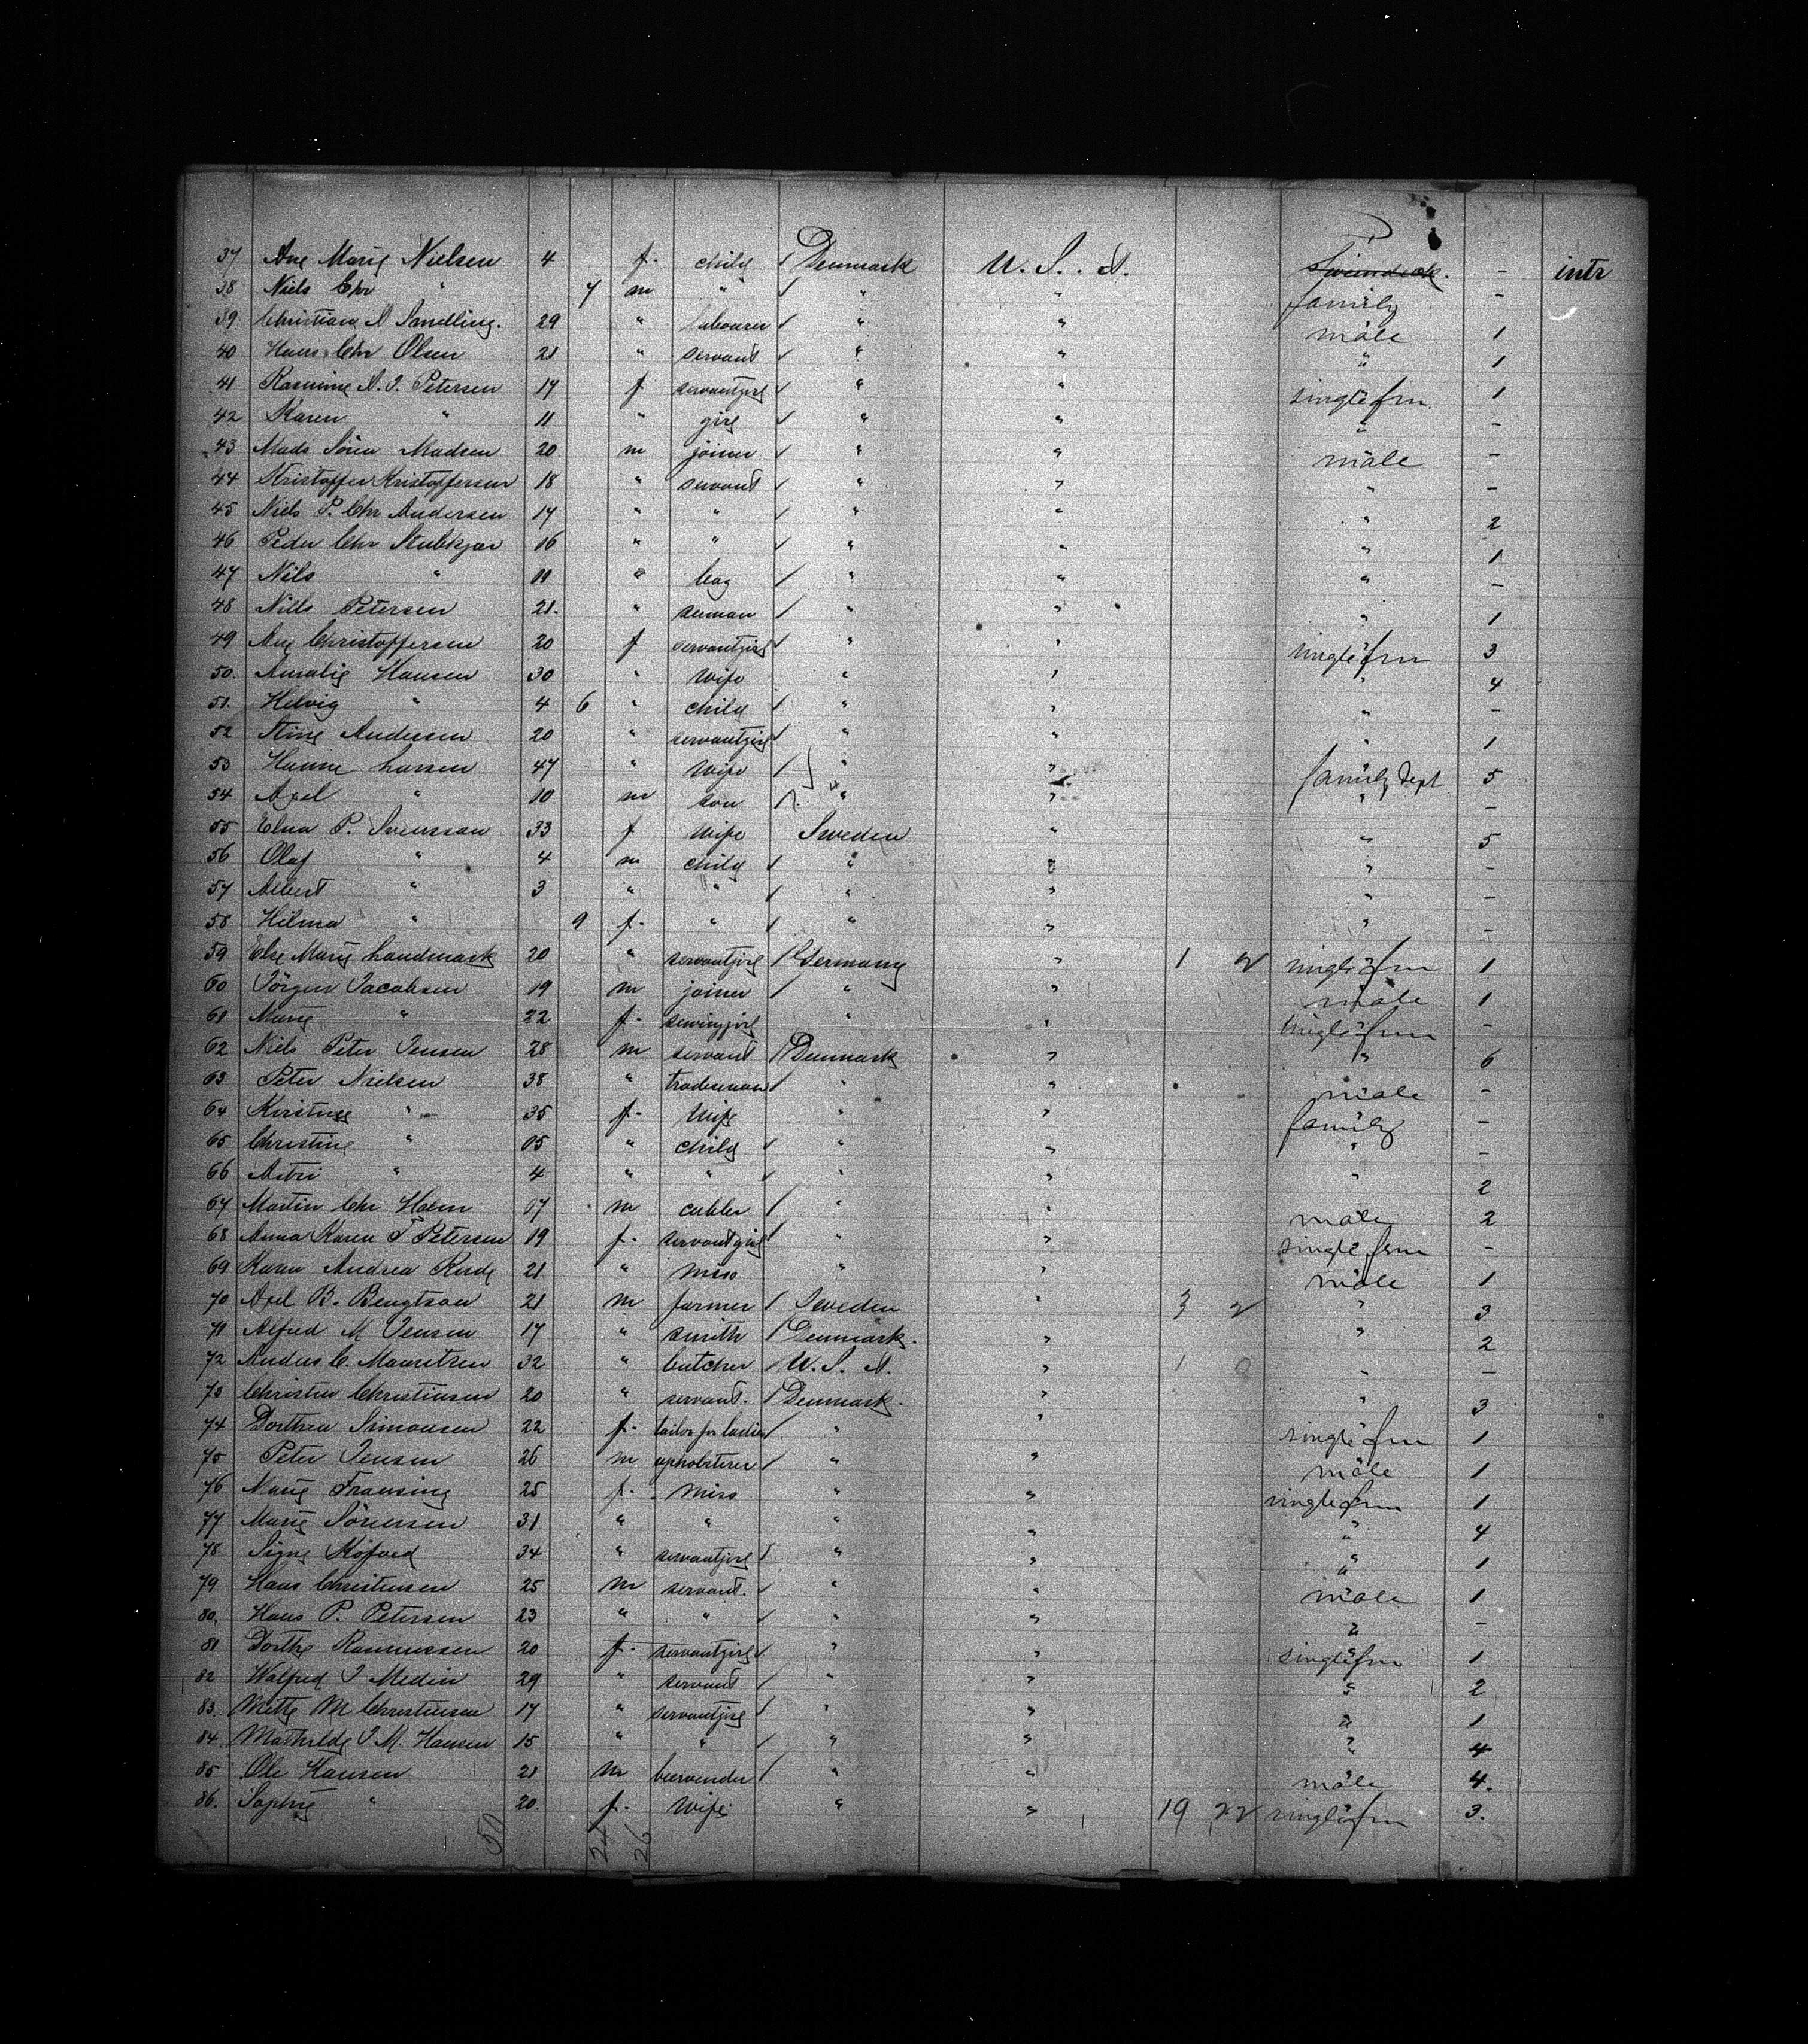 37 Ane Marie Nielsen 4 f. child / Denmark U. S. A. - intr
38 Niels Chr " 7 m " / " " family -
39 Christian A Smedling. 29 " labourer / " " male 1
40 Hans Chr Olsen 21 " servant / " " " 1
41 Rasmine A. J. Petersen 17 f servantgirl / " " single fm. 1
42 Karen " 11 " girl / " " " -
43 Mads Sören Madsen 20 m joiner / " " male -
44 Kristoffer Kristoffersen 18 " servant / " " " -
45 Niels P. Chr Andersen 17 " " / " " " 2
46 Peder Chr Stubkjær 16 " " / " " " 1
47 Nils " 11 " boy / " " " -
48 Nills Petersen 21. " seeman / " " " 1
49 Ane Christoffersen 20 f servantgirl / " " single fm 3
50. Amalie Hansen 30 " wife " " " 4
51. Helvig " 4 6 " child / " " " -
52 Stine Andersen 20 " servantgirl / " " " 1
53 Hanne Larsen 47 " wife / " " family Dept 5
54 Axel " 10 m son / " " " -
55 Elna P. Svensson 33 f wife Sweden " " 5
56 Olaf " 4 m child / " " " -
57 Albert " 3 " " / " " " -
58 Hilma " 9 f. " / " " " -
59 Else Marie Landmark 20 " servantgirl / Germany " 1 2 single fm 1
60 Jörgen Jacobsen 19 m joiner / " " male 1
61 Marie " 22 f. sewinggirl " " single fm -
62 Niels Peter Jensen 28 m servant / Denmark " " 6
63 Peter Nielsen 38 " tradesman / " " male -
64 Kirstine " 35 f. wife " " family -
65 Christine " 05 " child / " " " -
66 Astri " 4 " " / " " " 2
67 Martin Chr Holm 07 m cobler / " " male 2
68 Anna Karen T Petersen 19 f. servantgirl / " " single fem -
69 Karen Andrea 21 " miss " " male 1
70 Axel B. Bengtson 21 m farmer / Sweden " 3 2 " 3
71 Alfred M Jensen 17 " smith / Denmark. " " 2
72 Anders C. Mauritzen 32 " butcher / U. S. A. " 1 0 " -
73 Christen Christensen 20 " servant. / Denmark. " " 3
74 Dorthea Simonsen 22 f. tailor for ladies / " " single fm 1
75 Peter Jensen 26 m upholsterer / " " male 1
76 Marie Fransine 25 f. miss " " single fm 1
77 Marie Sörensen 31 " " " " " 4
78 Signe 34 " servantgirl / " " " 1
79 Hans Christensen 25 m servant. / " " male 1
80. Hans P. Petersen 23 " " / " " " -
81 Dorthe Rasmussen 20 f. servantgirl / " " single fm 1
82 Walfred J Medin 29 " servant / " " " 2
83. Mette M Christensen 17 " servantgirl / " " " 1
84. Mathilde J M. Hansen 15 " " / " " " 4
85 Ole Hansen 21 m beervender / " " male 4.
86. Sophie " 20. f. wife. " " 19 22 single fm 3.
50 24 26